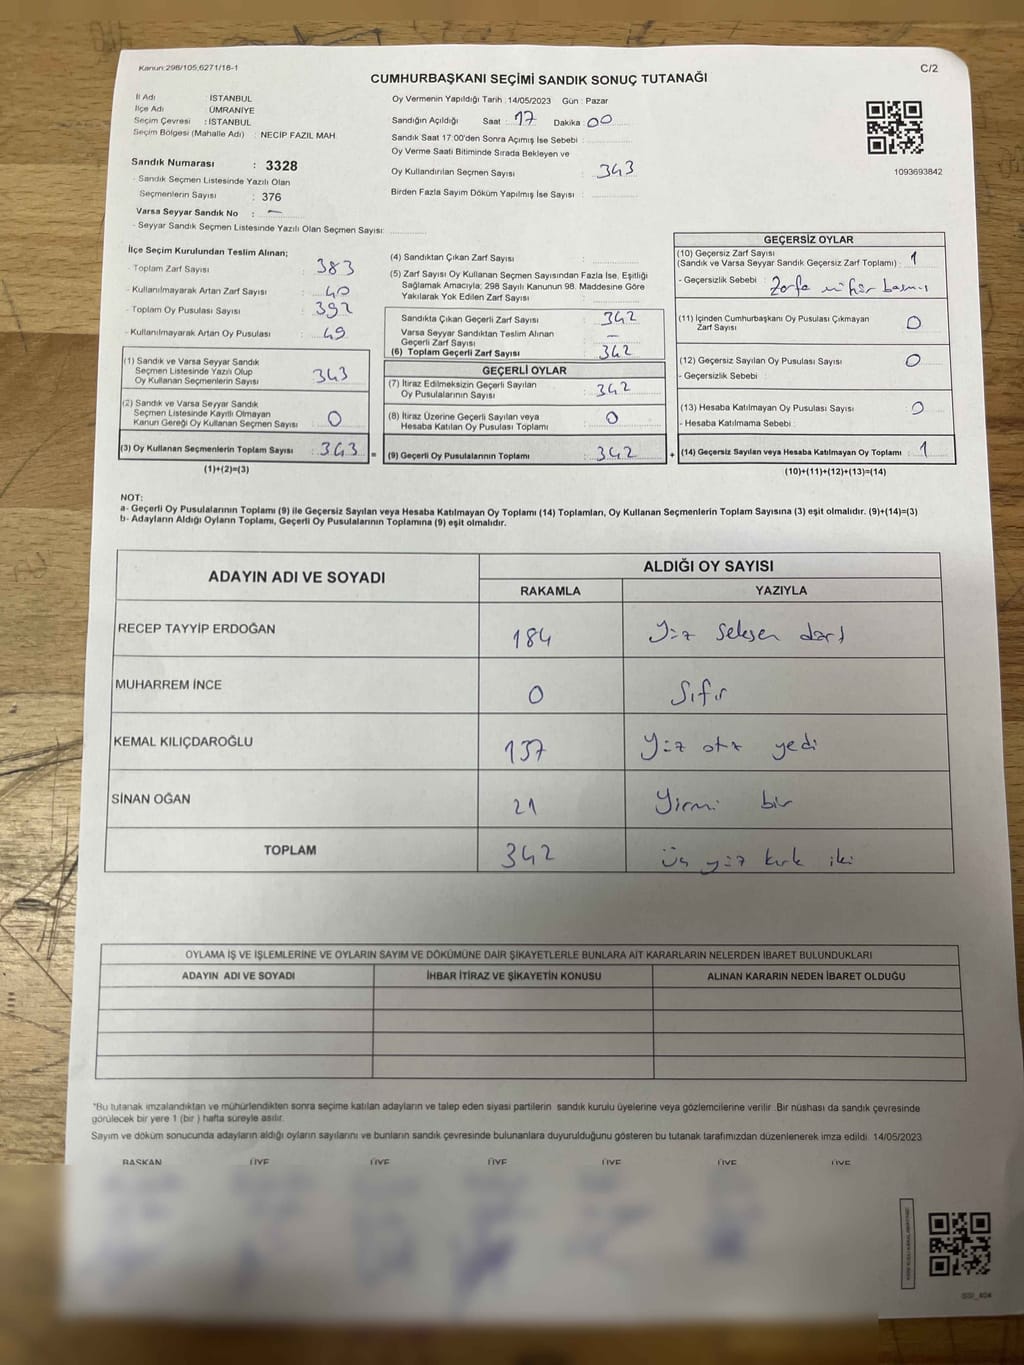 Kanun:298/105,6271/18-1
C/2
CUMHURBAŞKANI SEÇİMİ SANDIK SONUÇ TUTANAĞI
İl Adı : İSTANBUL
İlçe Adı : ÜMRANİYE
Seçim Çevresi : İSTANBUL
Seçim Bölgesi (Mahalle Adı) : NECİP FAZIL MAH.
Sandık Numarası : 3328
- Sandık Seçmen Listesinde Yazılı Olan
Seçmenlerin Sayısı : 376
Varsa Seyyar Sandık No : —
- Seyyar Sandık Seçmen Listesinde Yazılı Olan Seçmen Sayısı:
Oy Vermenin Yapıldığı Tarih : 14/05/2023 Gün : Pazar
Sandığın Açıldığı Saat : 17 Dakika : 00
Sandık Saat 17:00'den Sonra Açımış İse Sebebi :
Oy Verme Saati Bitiminde Sırada Bekleyen ve
Oy Kullandırılan Seçmen Sayısı : 343
Birden Fazla Sayım Döküm Yapılmış İse Sayısı :
1093693842
İlçe Seçim Kurulundan Teslim Alınan;
- Toplam Zarf Sayısı : 383
- Kullanılmayarak Artan Zarf Sayısı : 40
- Toplam Oy Pusulası Sayısı : 392
- Kullanılmayarak Artan Oy Pusulası : 49
(1) Sandık ve Varsa Seyyar Sandık
Seçmen Listesinde Yazılı Olup
Oy Kullanan Seçmenlerin Sayısı : 343
(2) Sandık ve Varsa Seyyar Sandık
Seçmen Listesinde Kayıtlı Olmayan
Kanun Gereği Oy Kullanan Seçmen Sayısı : 0
(3) Oy Kullanan Seçmenlerin Toplam Sayısı : 343
(1)+(2)=(3)
(4) Sandıktan Çıkan Zarf Sayısı :
(5) Zarf Sayısı Oy Kullanan Seçmen Sayısından Fazla İse, Eşitliği
Sağlamak Amacıyla; 298 Sayılı Kanunun 98. Maddesine Göre
Yakılarak Yok Edilen Zarf Sayısı :
Sandıkta Çıkan Geçerli Zarf Sayısı : 342
Varsa Seyyar Sandıktan Teslim Alınan
Geçerli Zarf Sayısı : —
(6) Toplam Geçerli Zarf Sayısı : 342
GEÇERLİ OYLAR
(7) İtiraz Edilmeksizin Geçerli Sayılan
Oy Pusulalarının Sayısı : 342
(8) İtiraz Üzerine Geçerli Sayılan veya
Hesaba Katılan Oy Pusulası Toplamı : 0
= (9) Geçerli Oy Pusulalarının Toplamı : 342
GEÇERSİZ OYLAR
(10) Geçersiz Zarf Sayısı
(Sandık ve Varsa Seyyar Sandık Geçersiz Zarf Toplamı) : 1
- Geçersizlik Sebebi : Zarfa mühür basmış
(11) İçinden Cumhurbaşkanı Oy Pusulası Çıkmayan
Zarf Sayısı : 0
(12) Geçersiz Sayılan Oy Pusulası Sayısı : 0
- Geçersizlik Sebebi :
(13) Hesaba Katılmayan Oy Pusulası Sayısı : 0
- Hesaba Katılmama Sebebi :
+ (14) Geçersiz Sayılan veya Hesaba Katılmayan Oy Toplamı : 1
(10)+(11)+(12)+(13)=(14)
NOT:
a- Geçerli Oy Pusulalarının Toplamı (9) ile Geçersiz Sayılan veya Hesaba Katılmayan Oy Toplamı (14) Toplamları, Oy Kullanan Seçmenlerin Toplam Sayısına (3) eşit olmalıdır. (9)+(14)=(3)
b- Adayların Aldığı Oyların Toplamı, Geçerli Oy Pusulalarının Toplamına (9) eşit olmalıdır.
ADAYIN ADI VE SOYADI
ALDIĞI OY SAYISI
RAKAMLA YAZIYLA
RECEP TAYYİP ERDOĞAN 184 Yüz seksen dört
MUHARREM İNCE 0 Sıfır
KEMAL KILIÇDAROĞLU 137 Yüz otuz yedi
SİNAN OĞAN 21 Yirmi bir
TOPLAM 342 üç yüz kırk iki
OYLAMA İŞ VE İŞLEMLERİNE VE OYLARIN SAYIM VE DÖKÜMÜNE DAİR ŞİKAYETLERLE BUNLARA AİT KARARLARIN NELERDEN İBARET BULUNDUKLARI
ADAYIN ADI VE SOYADI İHBAR İTİRAZ VE ŞİKAYETİN KONUSU ALINAN KARARIN NEDEN İBARET OLDUĞU
*Bu tutanak imzalandıktan ve mühürlendikten sonra seçime katılan adayların ve talep eden siyasi partilerin sandık kurulu üyelerine veya gözlemcilerine verilir. Bir nüshası da sandık çevresinde
görülecek bir yere 1 (bir ) hafta süreyle asılır.
Sayım ve döküm sonucunda adayların aldığı oyların sayılarını ve bunların sandık çevresinde bulunanlara duyurulduğunu gösteren bu tutanak tarafımızdan düzenlenerek imza edildi. 14/05/2023
BAŞKAN ÜYE ÜYE ÜYE ÜYE ÜYE ÜYE